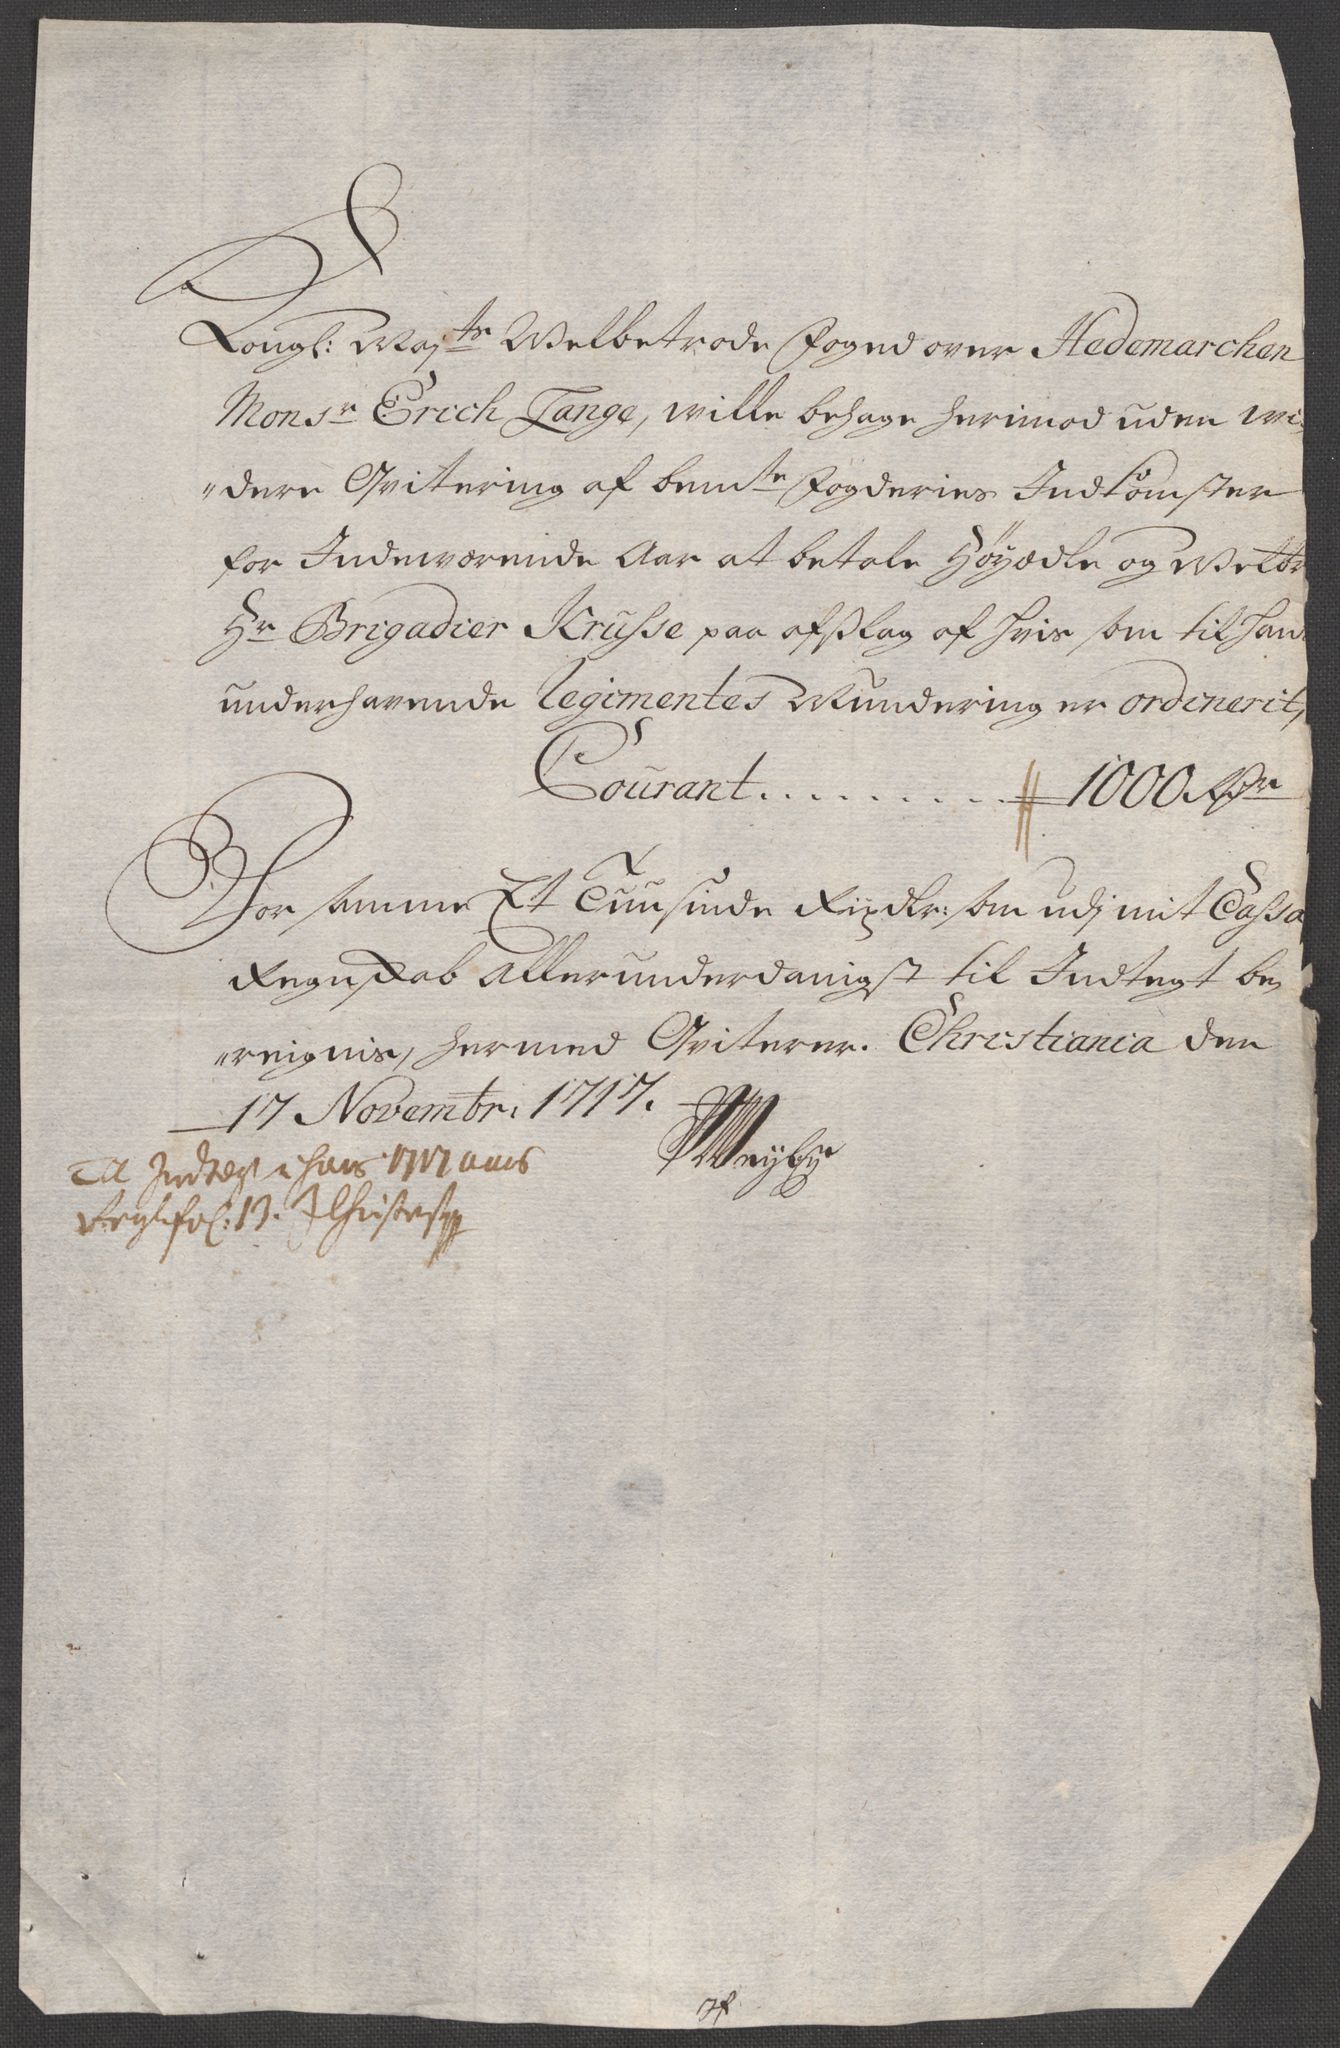 Kongl: Maj.tz Welbetrode Foged over Hedemarchen
Monsr Erich Lange, wille behage herimod uden wi,
„dere Qvitering af bemte Fogderies Indkomster
for Indewærende Aar at betale Høyædle og Welbr
Hr Brigadier Krusse paa afslag af hvis som til hans
underhavende Regimentes Mundering er ordinerit,
Courant . . . . . . . . . 1000 Rdr
For samme Et Tuusinde Rixdlr: som udj mit Cassa
Regnskab allerunderdanigst til Indtegt be,
„reignis, hermed Qviterer. Christiania den
17 Novembr: 1717.
Weyby
Til Indtegt i hans 1717 aars
Regsk. fol: 13.